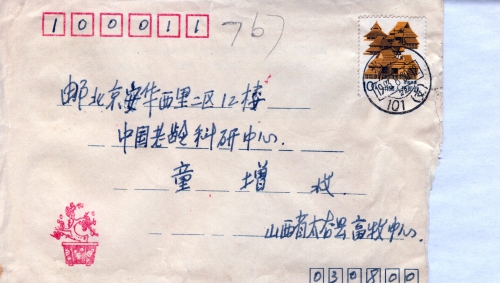 100011
767
邮北京安华西里二区12楼
中国老龄科研中心.
童 增 收.
山西省太谷县畜牧中心.
030800